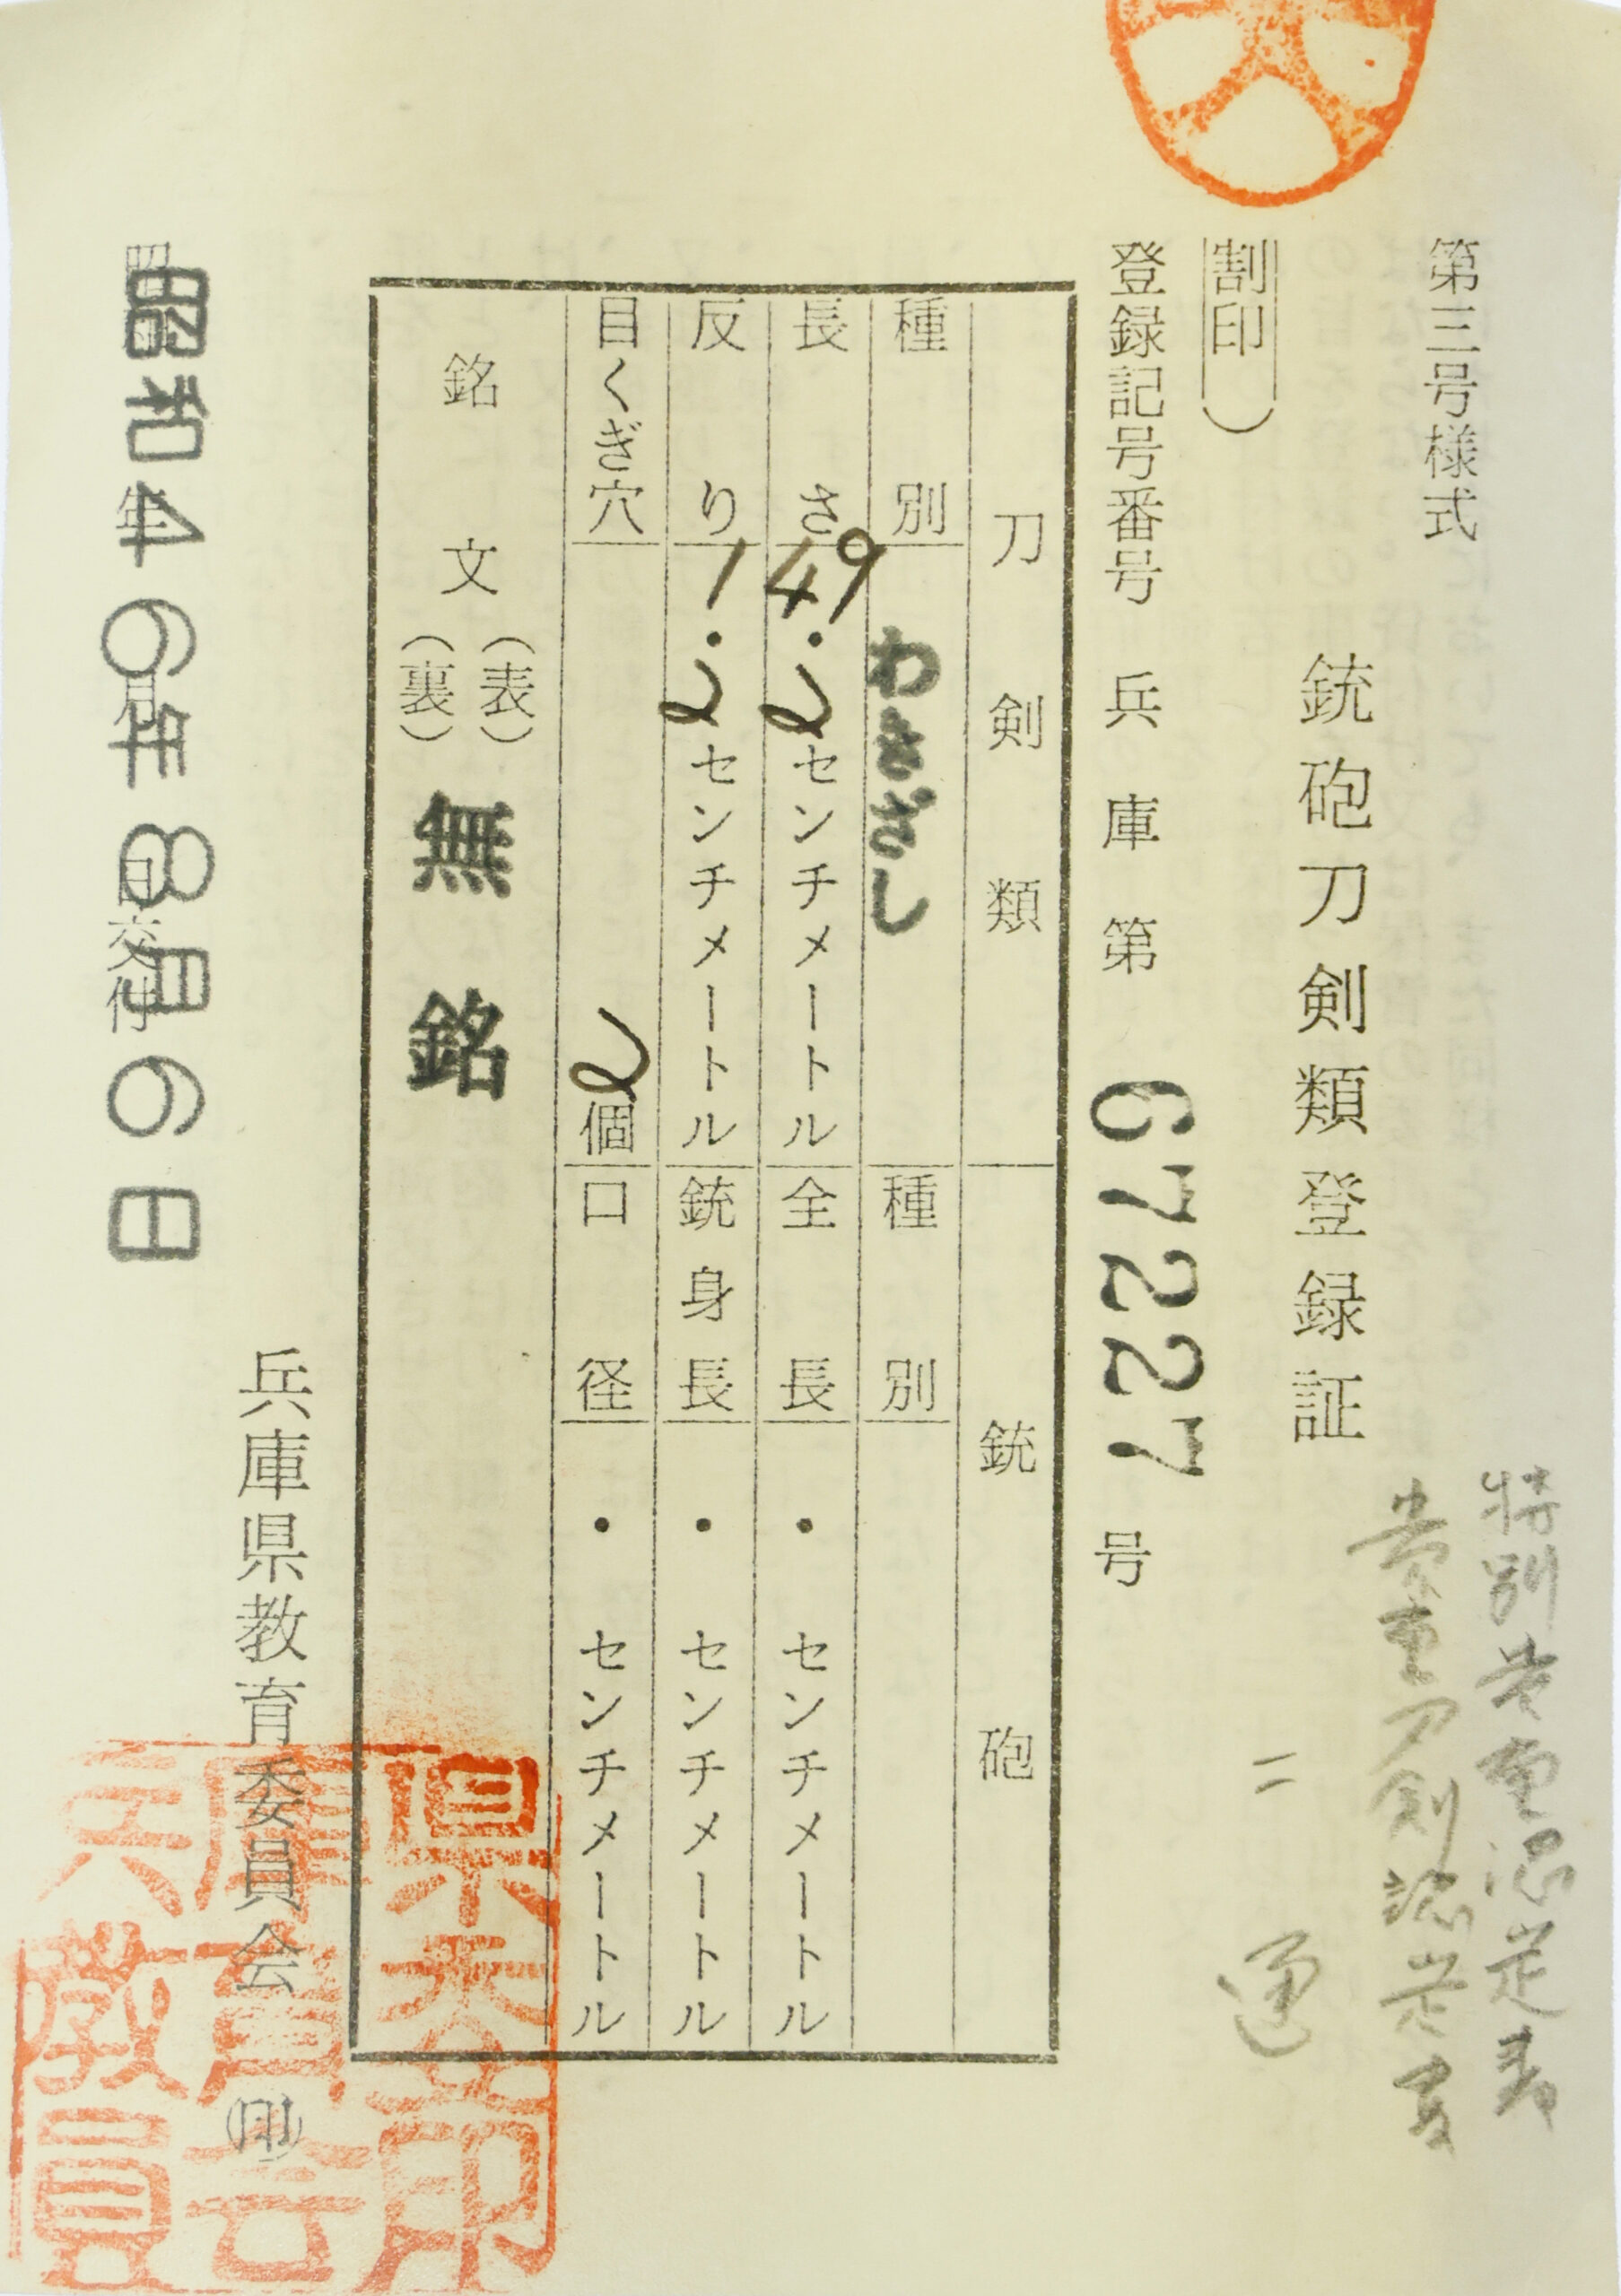 第三号様式
特別貴重認定書
貴重刀剣認定書
二通
銃砲刀剣類登録証
(割印)
登録記号番号 兵庫第 67227 号
刀剣類 銃砲
種別 わきざし 種別
長さ 49.2センチメートル 全長 ・ センチメートル
反り 1.2センチメートル 銃身長 ・ センチメートル
目くぎ穴 2個 口径 ・ センチメートル
銘文 (表) (裏) 無銘
兵庫県教育委員会 ㊞
昭和46年8月6日
兵庫県教育委員会印